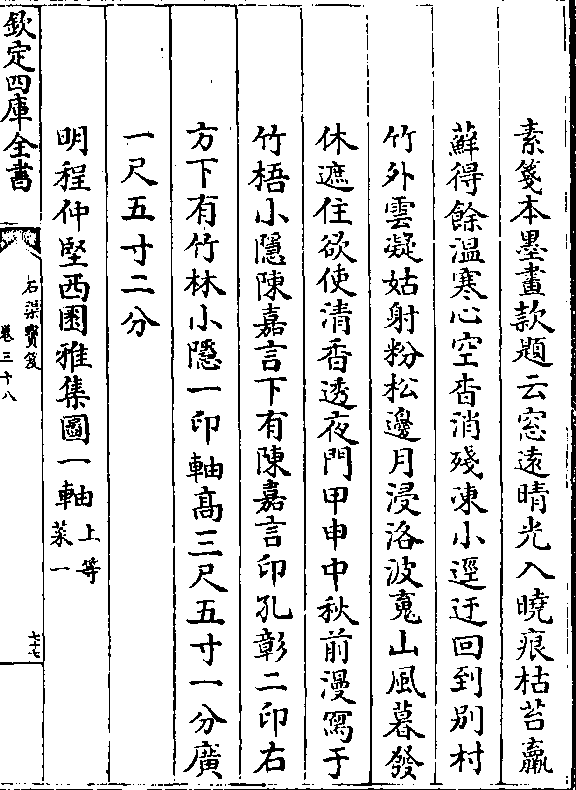 素箋本墨畫款題云窓遠晴光入曉痕枯苔羸
蘚得餘温寒心空杳消殘凍小逕迂回到别村
竹外雲凝姑射粉松邊月浸洛波䰟山風暮發
休遮住欲使清香透夜門甲申中秋前漫寫于
竹梧小隱陳嘉言下有陳嘉言印孔彰二印右
方下有竹林小隱一印軸髙三尺五寸一分廣
一尺五寸二分
明程仲堅西園雅集圖一軸
上等
菉一
欽定四庫全書
石渠寳笈
卷三十八
七七